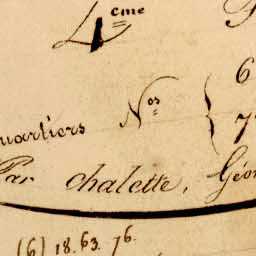 4cme
uartiers Nos { 6
7
Par chalette, Géo
(6) 18. 63. 76.